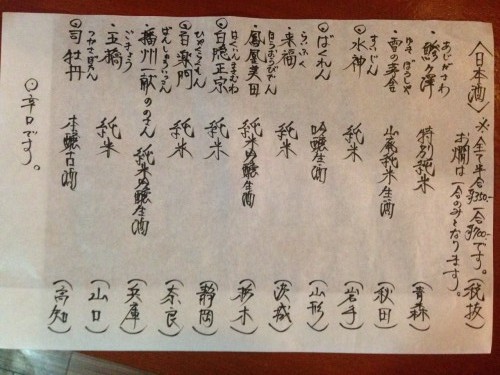 〈日本酒〉 ※全て半合¥350- 一合¥700-です。(税抜)
お燗は一合のみとなります。
あじがさわ
・鰺ヶ澤 特別純米 (青森)
ゆき ぼうしゃ
・雪の茅舎 山廃純米生酒 (秋田)
すいじん
◎水神 純米 (岩手)
◎ばくれん 吟醸生酒 (山形)
らいふく
・来福 純米 (茨城)
ほうおうびでん
・鳳凰美田 純米吟醸生酒 (栃木)
はくいんまさむね
◎白隠正宗 純米 (静岡)
ひゃくらくもん
◎百楽門 純米 (奈良)
ばんしゅういっこん
・播州一献 純米吟醸生酒 (兵庫)
ごきょう
・五橋 純米 (山口)
つかさぼたん
◎司牡丹 本醸古酒 (高知)
◎辛口です。